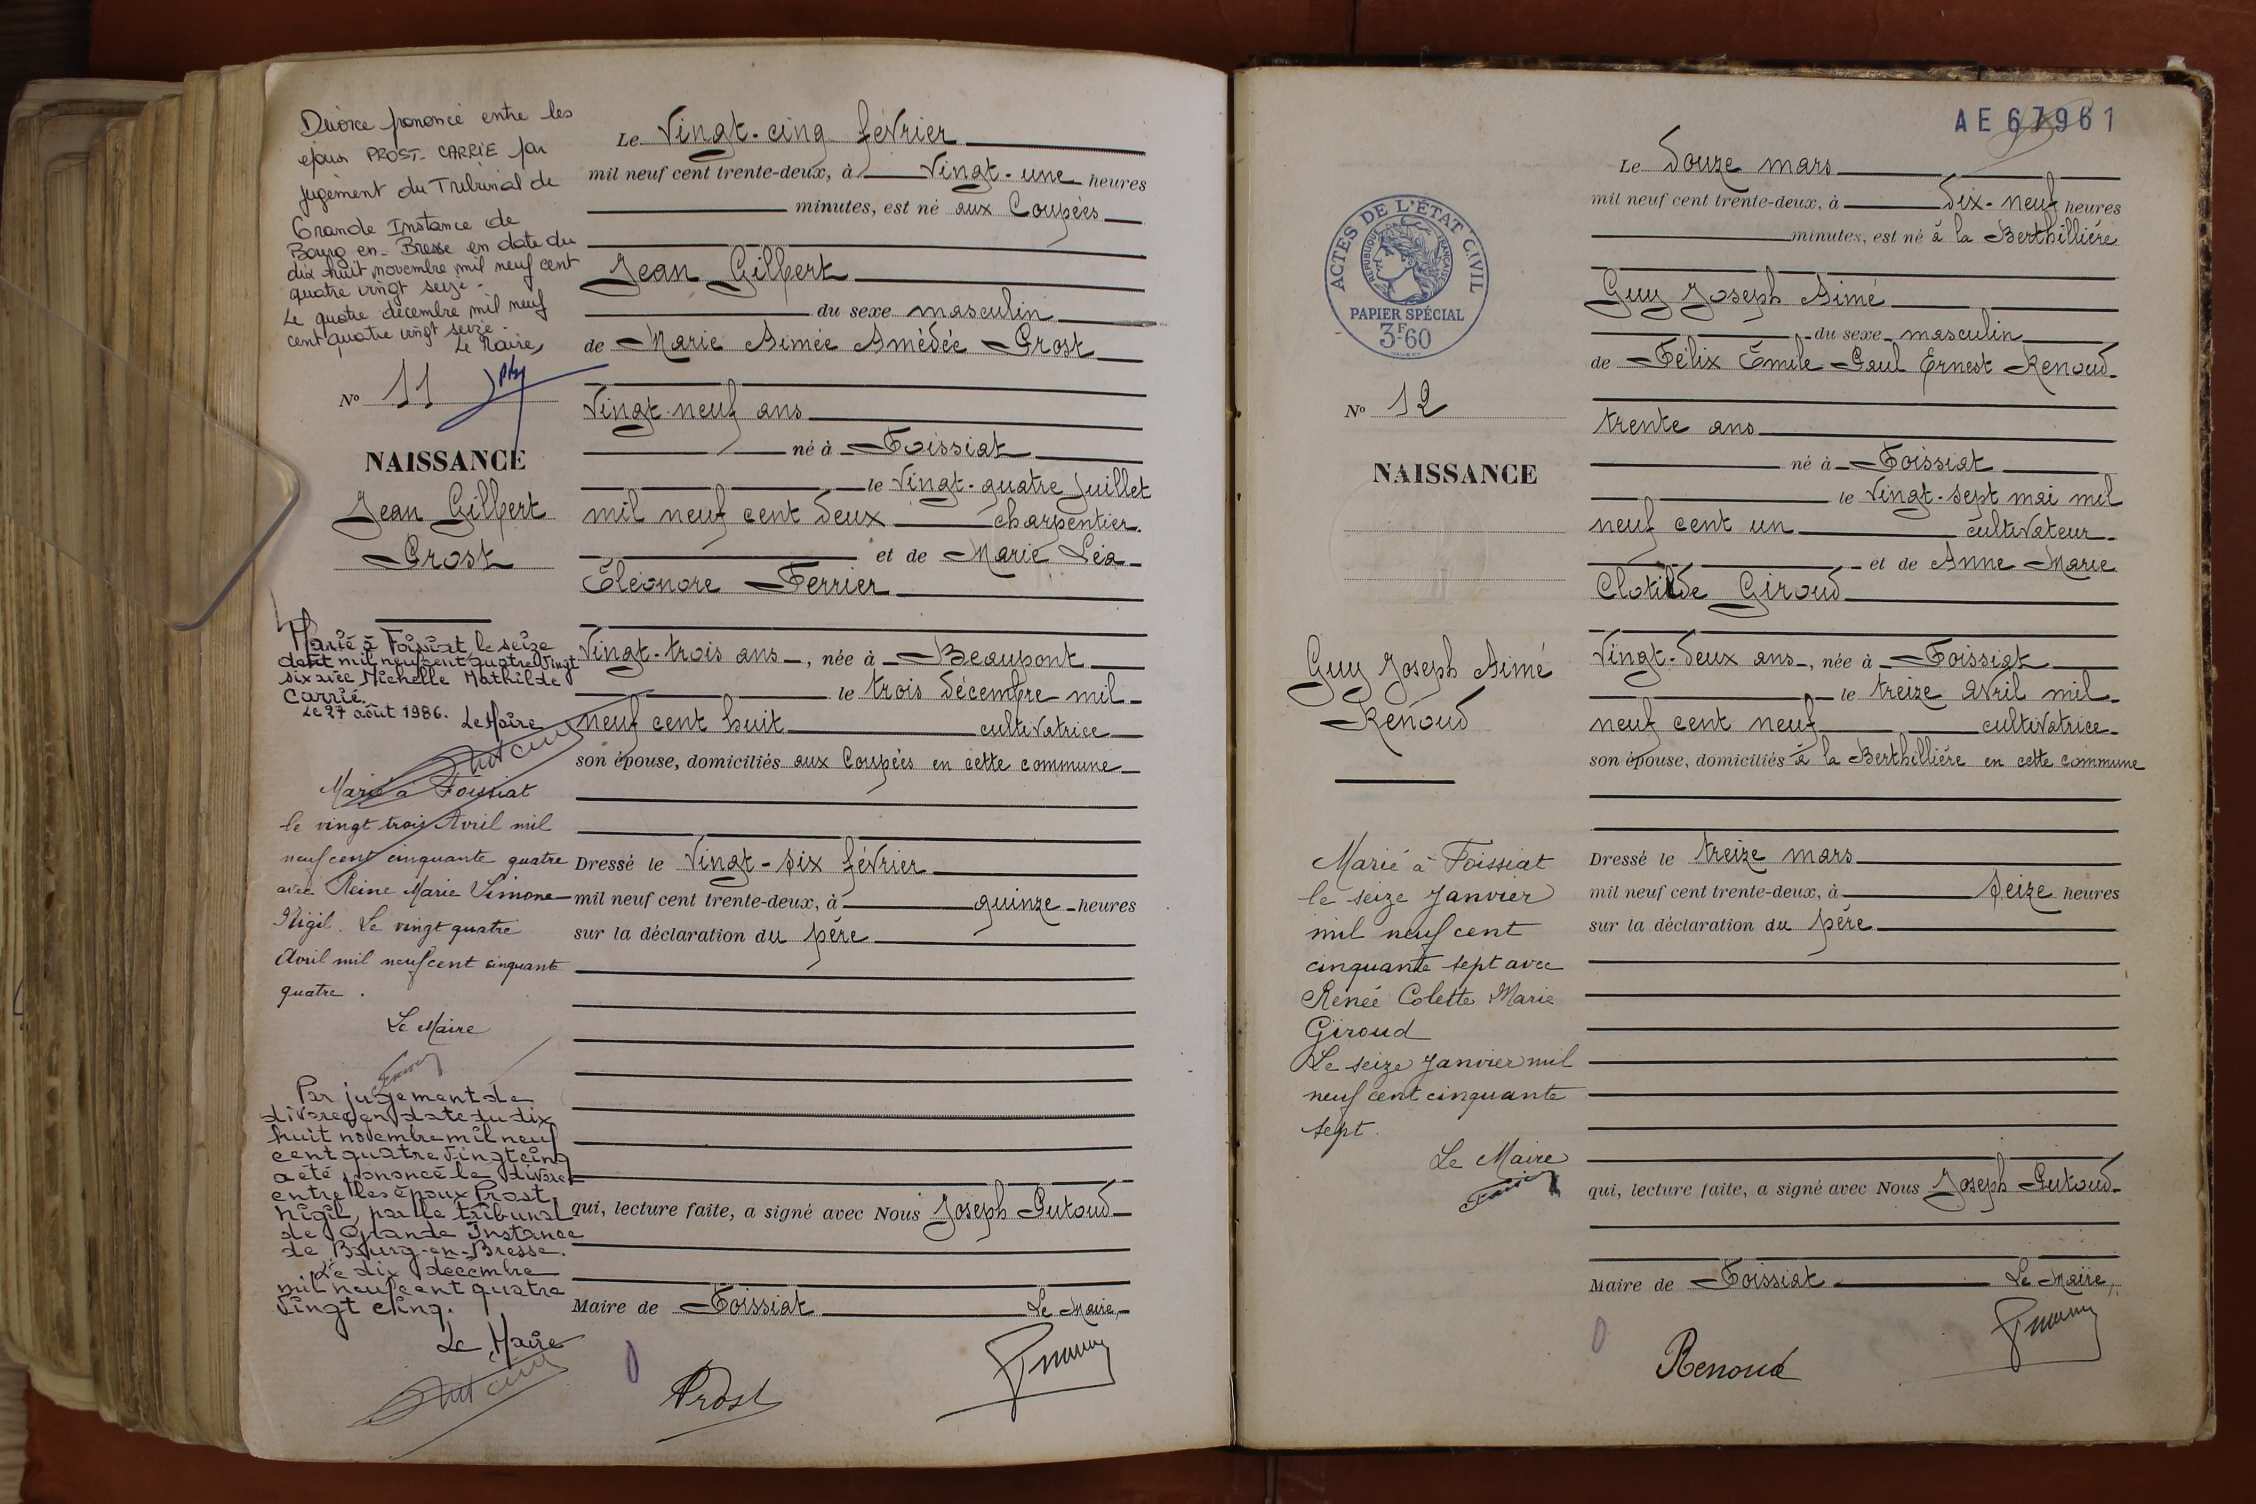 Divorce prononcé entre les
époux PROST-CARRIE par
jugement du Tribunal de
Grande Instance de
Bourg-en-Bresse en date du
dix huit novembre mil neuf cent
quatre vingt seize.
Le quatre décembre mil neuf
cent quatre vingt seize.
Le Maire,
No 11
NAISSANCE
Jean Gilbert
Prost
Marié à Foissiat le seize
août mil neuf cent quatre vingt
six avec Michelle Mathilde
Carrié.
Le 27 août 1986. Le Maire
Marié à Foissiat
le vingt trois Avril mil
neuf cent cinquante quatre
avec Reine Marie Simone
Nigil. Le vingt quatre
Avril mil neuf cent cinquante
quatre.
Le Maire
Par jugement de
divorce en date du dix
huit novembre mil neuf
cent quatre vingt cinq
a été prononcé le divorce
entre les époux Prost,
Nigil, par le tribunal
de Grande Instance
de Bourg-en-Bresse.
Le dix décembre
mil neuf cent quatre
vingt cinq.
Le Maire
Le Vingt-cinq février
mil neuf cent trente-deux, à Vingt-une heures
minutes, est né aux Coupées
Jean Gilbert
du sexe masculin
de Marie Aimée Amédée Prost
Vingt-neuf ans
né à Foissiat
le Vingt-quatre Juillet
mil neuf cent deux charpentier.
et de Marie Léa
Eléonore Ferrier
Vingt-trois ans, née à Beaupont
le trois décembre mil
neuf cent huit cultivatrice
son épouse, domiciliés aux Coupées en cette commune
Dressé le Vingt-six février
mil neuf cent trente-deux, à quinze heures
sur la déclaration du père
qui, lecture faite, a signé avec Nous Joseph Putoud
Maire de Foissiat Le Maire,
Prost
AE 67961
ACTES DE L'ÉTAT CIVIL
RÉPUBLIQUE FRANÇAISE
PAPIER SPÉCIAL
3F60
No 12
NAISSANCE
Guy Joseph Aimé
Renoud
Marié à Foissiat
le seize Janvier
mil neuf cent
cinquante sept avec
Renée Colette Marie
Giroud
Le seize Janvier mil
neuf cent cinquante
sept.
Le Maire
Le douze mars
mil neuf cent trente-deux, à dix-neuf heures
minutes, est né à la Berthillière
Guy Joseph Aimé
du sexe masculin
de Félix Emile Paul Ernest Renoud
trente ans
né à Foissiat
le Vingt-sept mai mil
neuf cent un cultivateur
et de Anne Marie
Clotilde Giroud
Vingt-deux ans, née à Foissiat
le treize Avril mil
neuf cent neuf cultivatrice
son épouse, domiciliés à la Berthillière en cette commune
Dressé le treize mars
mil neuf cent trente-deux, à seize heures
sur la déclaration du père
qui, lecture faite, a signé avec Nous Joseph Putoud
Maire de Foissiat Le Maire,
Renoud